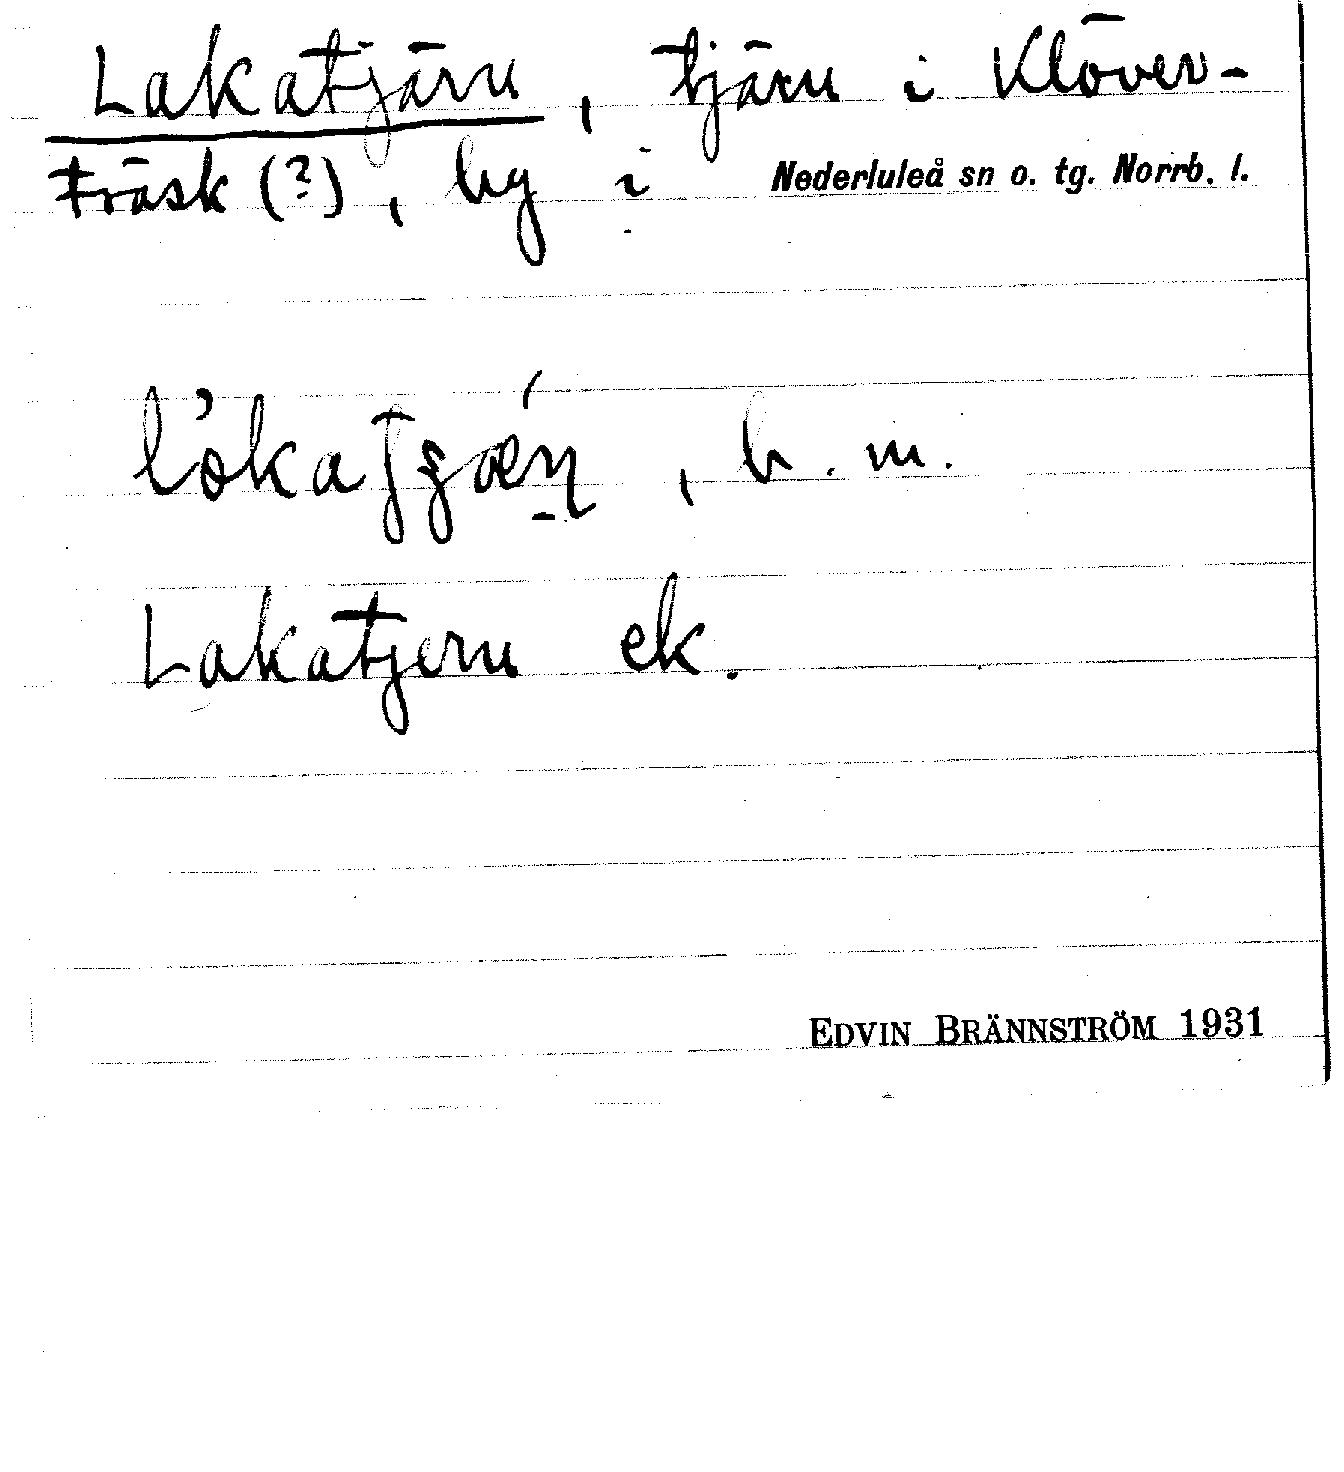 Lakatjärn, tjärn i Klöver-
träsk (?), by i Nederluleå sn o. tg. Norrb. l.
b. m.
Lakatjern ek.
EDVIN BRÄNNSTRÖM 1931